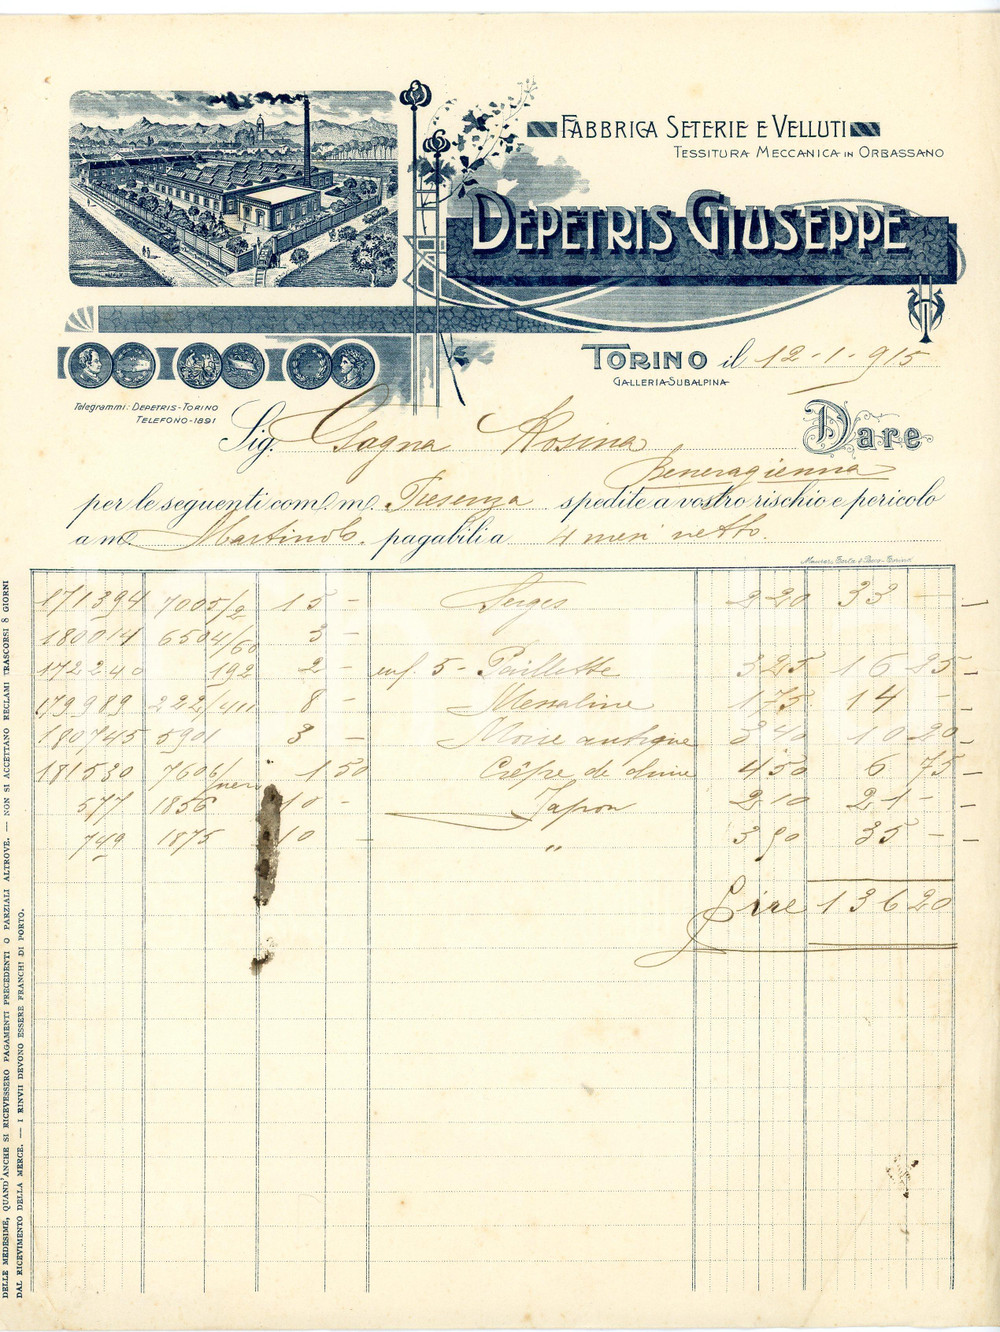 FABBRICA SETERIE E VELLUTI
TESSITURA MECCANICA IN ORBASSANO
DEPETRIS GIUSEPPE
TORINO il 12-1-915
GALLERIA SUBALPINA
Telegrammi: DEPETRIS-TORINO
TELEFONO-1891
Sig. Gagna Rosina Dare
Benevagienna
per le seguenti com. m. Presenza spedite a vostro rischio e pericolo
a m. Martinolo. pagabili a 4 mesi netto.
171394 7005/2 15 - Serges 2 20 33 -
180014 6504/60 3 -
172240 192 2 - 5 - Paillette 3 25 16 25
179989 222/411 8 - Messaline 1 75 14 -
180745 5901 3 - Moire antique 3 40 10 20
181530 7606/neri 1 50 Crêpe de chine 4 50 6 75
577 1856 10 - Japon 2 10 21 -
749 1875 10 - " 3 50 35 -
Lire 136 20
DELLE MEDESIME, QUAND'ANCHE SI RICEVESSERO PAGAMENTI PRECEDENTI O PARZIALI ALTROVE. — NON SI ACCETTANO RECLAMI TRASCORSI 8 GIORNI
DAL RICEVIMENTO DELLA MERCE. — I RINVII DEVONO ESSERE FRANCHI DI PORTO.